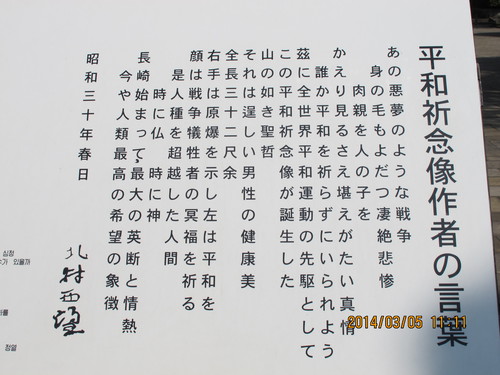 平和祈念像作者の言葉
あの悪夢のような戦争
身の毛もよだつ凄絶悲惨
肉親を人の子を
かえり見るさえ堪えがたい真情
誰か平和を祈らずにいられよう
茲に全世界平和運動の先駆として
この平和祈念像が誕生した
山の如き聖哲
それは逞しい男性の健康美
全長三十二尺余
右手は原爆を示し左は平和を
顔は戦争犠牲者の冥福を祈る
是人種を超越した人間
時に仏 時に神
長崎始まって最大の英断と情熱
今や人類最高の希望の象徴
昭和三十年春日
北村西望
2014/03/05 11:11